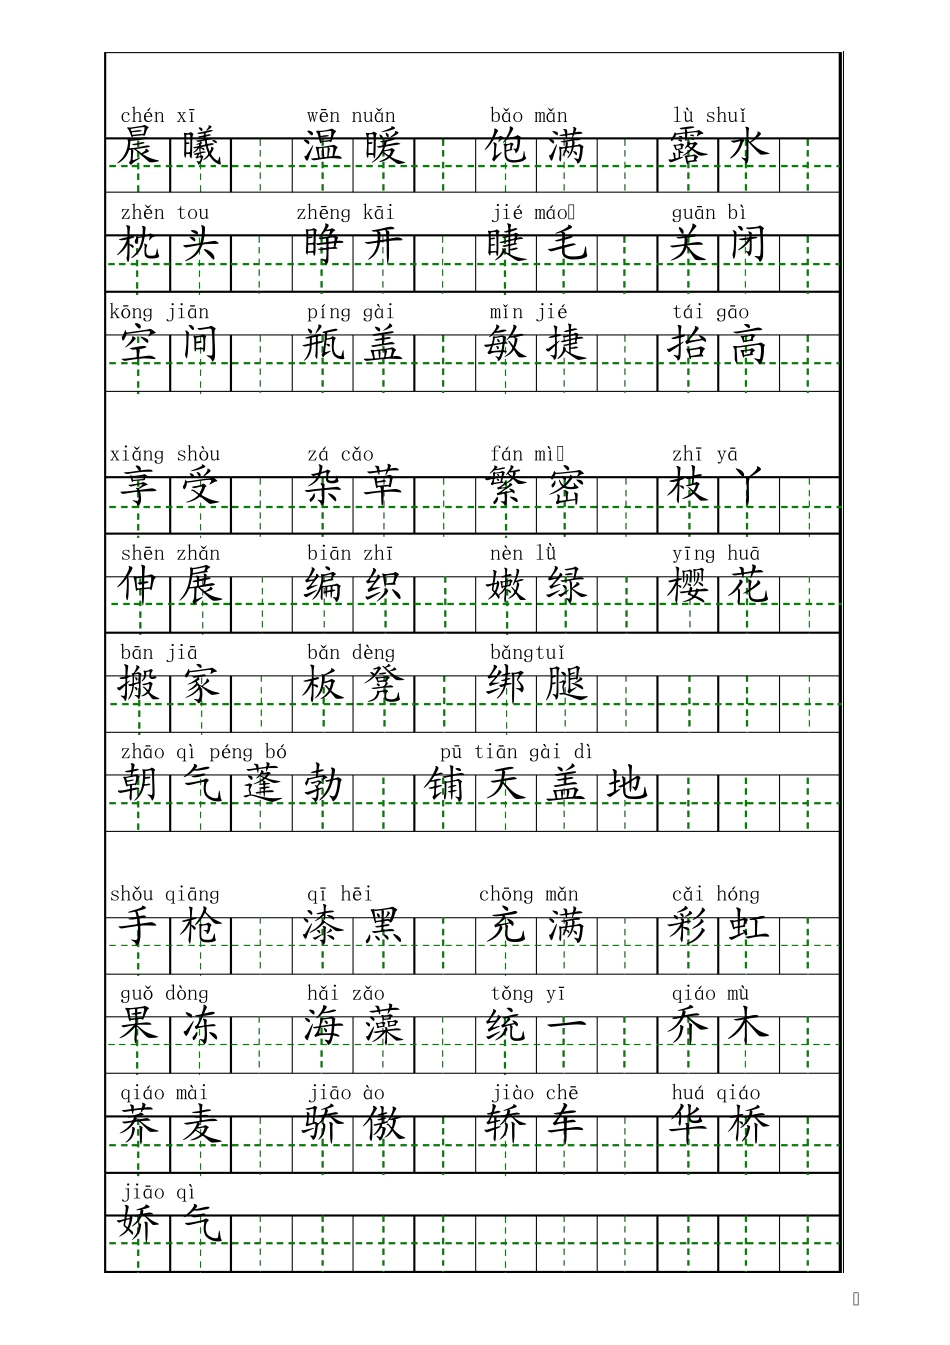 chén xī wēn nuǎn bǎo mǎn lù shuǐ
晨曦 温暖 饱满 露水
zhěn tou zhēng kāi jié máo guān bì
枕头 睁开 睫毛 关闭
kōng jiān píng gài mǐn jié tái gāo
空间 瓶盖 敏捷 抬高
xiǎng shòu zá cǎo fán mì zhī yā
享受 杂草 繁密 枝丫
shēn zhǎn biān zhī nèn lǜ yīng huā
伸展 编织 嫩绿 樱花
bān jiā bǎn dèng bǎngtuǐ
搬家 板凳 绑腿
zhāo qì péng bó pū tiān gài dì
朝气蓬勃 铺天盖地
shǒu qiāng qī hēi chōng mǎn cǎi hóng
手枪 漆黑 充满 彩虹
guǒ dòng hǎi zǎo tǒng yī qiáo mù
果冻 海藻 统一 乔木
qiáo mài jiāo ào jiào chē huá qiáo
荞麦 骄傲 轿车 华桥
jiāo qì
娇气